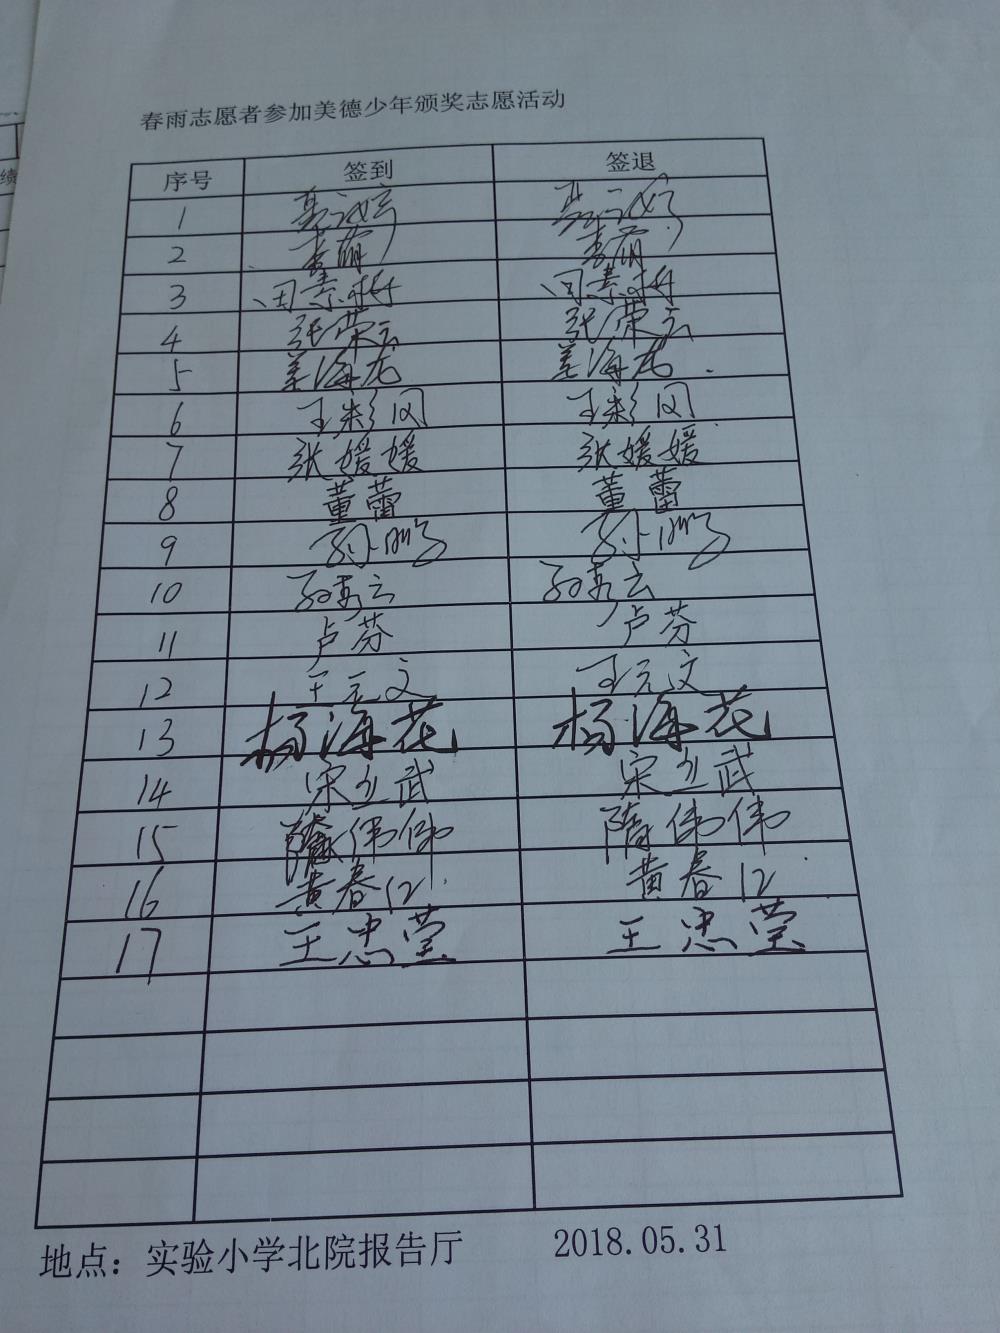 春雨志愿者参加美德少年颁奖志愿活动
序号 签到 签退
1
2 李萌 李萌
3
4 张荣云 张荣云
5 姜海花 姜海花
6 王彩风 王彩风
7 张媛媛 张媛媛
8 董蕾 董蕾
9 孙小鹏 孙小鹏
10 孙秀云 孙秀云
11 卢芬 卢芬
12 王元文 王元文
13 杨海花 杨海花
14 宋立武 宋立武
15 隋伟伟 隋伟伟
16 黄春江 黄春江
17 王忠莹 王忠莹
地点：实验小学北院报告厅 2018.05.31
绩